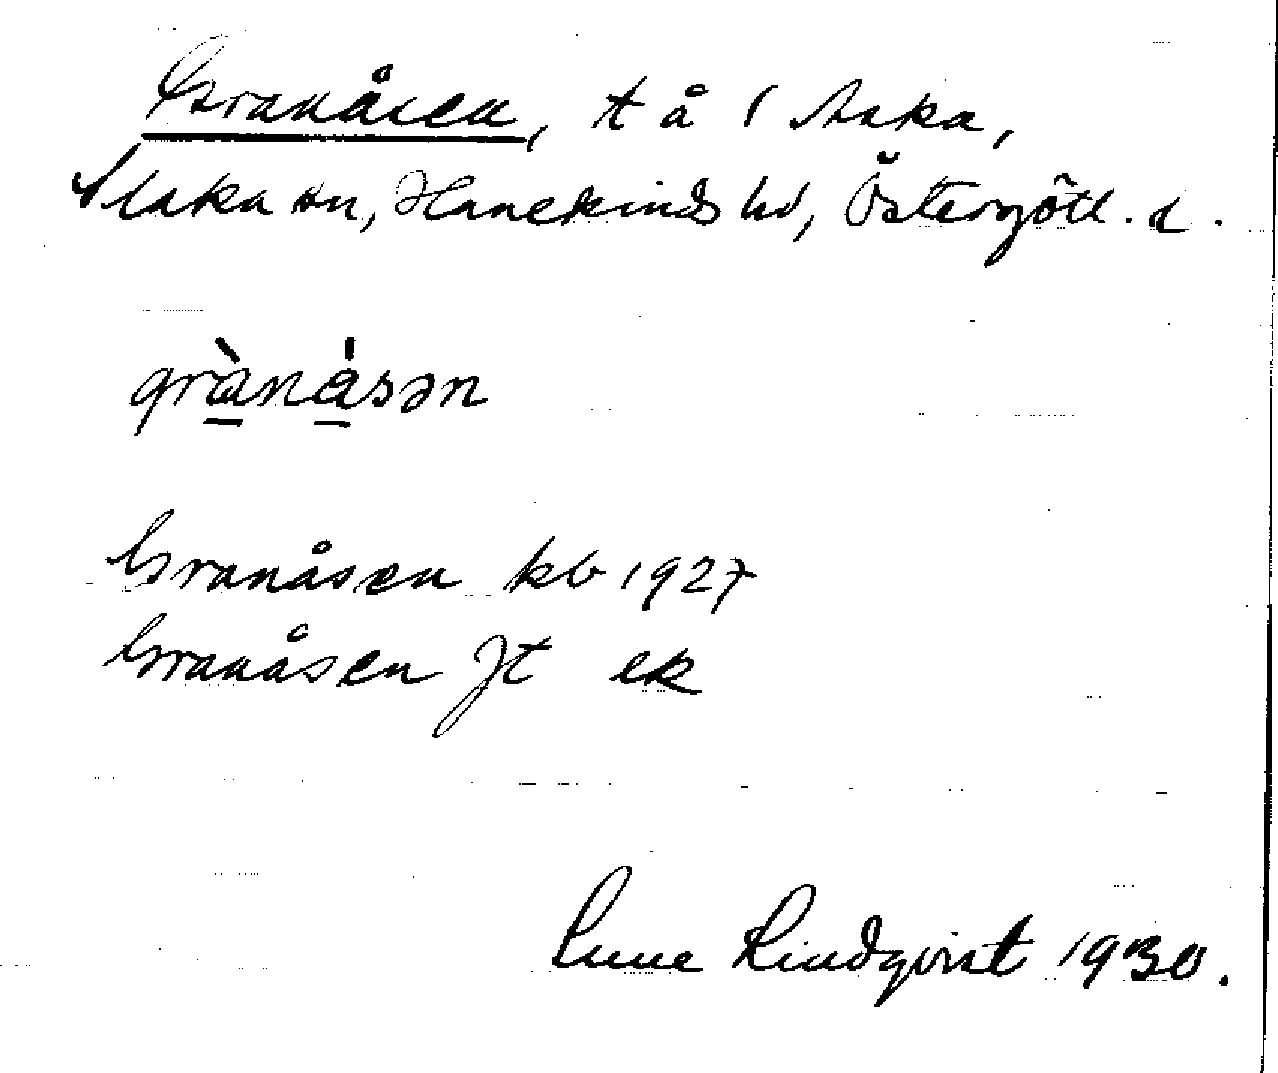 Granåsen, t å 1 Aska,
Slaka sn, Hanekinds hd, Östergötl. l.
gràna̍sən
Granåsen kb 1927
Granåsen Jt ek
Sune Lindqvist 1930.